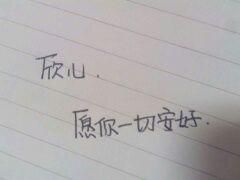 欣心.
愿你一切安好.